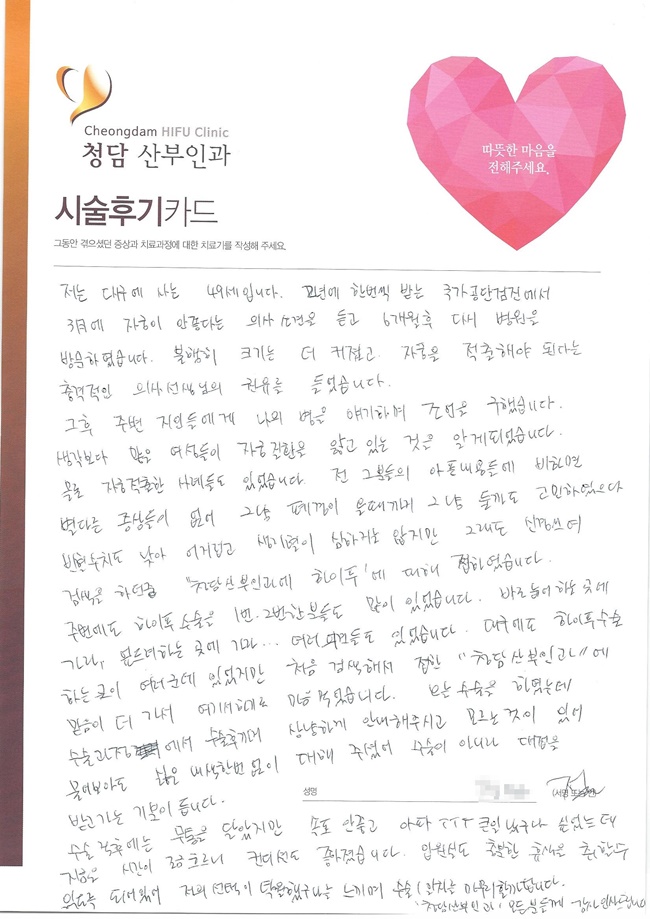 Cheongdam HIFU Clinic
청담 산부인과
따뜻한 마음을
전해주세요.
시술후기카드
그동안 겪으셨던 증상과 치료과정에 대한 치료기를 작성해 주세요.
저는 대구에 사는 49세입니다. 2년에 한번씩 받는 국가공단검진에서
3月에 자궁이 안좋다는 의사 소견을 듣고 6개월후 다시 병원을
방문하였습니다. 불행히 크기는 더 커졌고, 자궁을 적출해야 된다는
충격적인 의사선생님의 권유를 들었습니다.
그후 주변 지인들에게 나의 병을 얘기하며 조언을 구했습니다.
생각보다 많은 여성들이 자궁질환을 앓고 있는 것을 알게되었습니다.
물론 자궁적출한 사례들도 있었습니다. 전 그분들의 아픈내용들에 비하면
별다른 증상들이 없어 그냥 폐경이 올때까지 그냥 둘까도 고민하였으나
빈혈수치도 낮아 어지럽고 생리혈이 심하지는 않지만 그래도 신경쓰여
검색을 하던중 "청담산부인과에 하이푸'에 대해 접하였습니다.
주변에도 하이푸 수술은 1번, 2번한 분들도 많이 있었습니다. 바로 하는 곳에
가라, 하는 곳에 가라... 여러 의견들도 있었습니다. 대구에도 하이푸수술
하는곳이 여러군데 있었지만 처음 검색해서 접한 "청담산부인과"에
믿음이 더 가서 여기서하기로 마음먹었습니다. 모든 수술은 하였는데
수술과정에서 수술후까지 상냥하게 안내해주시고 모르는것이 있어
물어보아도 싫은 내색한번없이 대해 주셨어 수술이 아니라 대접을
받고가는 기분이 듭니다.
성명
(서명 또는 인)
수술 직후에는 무통을 달았지만 속도 안좋고 아파 ㅜㅜㅜ 큰일났구나 싶었는데
지금은 시간이 조금 흐르니 컨디션도 좋아졌습니다. 입원실도 충분한 휴식을 취할수
있도록 되어있어 저의 선택이 탁월했구나를 느끼며 수술(과정)을 마무리할까합니다.
'청담산부인과' 모든분들께 감사인사드립니다